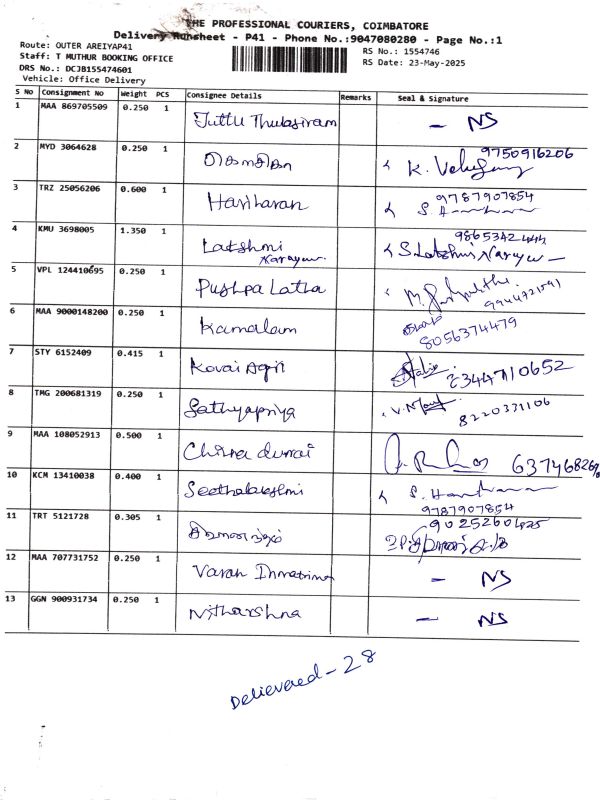 THE PROFESSIONAL COURIERS, COIMBATORE
Delivery Runsheet - P41 - Phone No.:9047080280 - Page No.:1
Route: OUTER AREIYAP41
Staff: T MUTHUR BOOKING OFFICE
DRS No.: DCJB155474601
Vehicle: Office Delivery
RS No.: 1554746
RS Date: 23-May-2025
S No Consignment No Weight PCS Consignee Details Remarks Seal & Signature
1 MAA 869705509 0.250 1 Juttu Thulasiram - NS
2 MYD 3064628 0.250 1 9750916206
3 TRZ 25056206 0.600 1 Hariharan 9787907854
4 KMU 3698005 1.350 1 Lakshmi Narayan S. Lakshmi Narayan
5 VPL 124410695 0.250 1 Pushpa Latha
6 MAA 9000148200 0.250 1 Kamalam 8056374479
7 STY 6152409 0.415 1 Kovai Agri 6344710652
8 TMG 200681319 0.250 1 Sathyapriya 8220331106
9 MAA 108052913 0.500 1 Chinna durai
10 KCM 13410038 0.400 1 Seethalakshmi 9787907854
11 TRT 5121728 0.305 1
12 MAA 707731752 0.250 1 Varan - NS
13 GGN 900931734 0.250 1 Nitharshna - NS
Delievered - 28